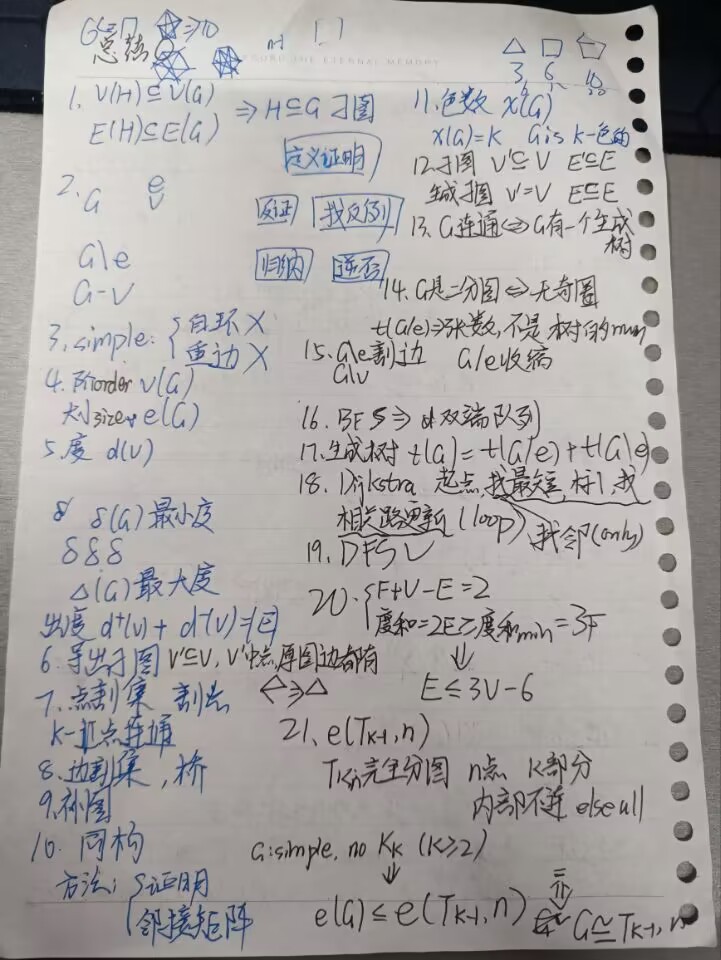 总结
≥10
3 6 10
1. V(H)⊆V(G)
E(H)⊆E(G) ⇒ H⊆G 子图
定义证明
反证 找反例
归纳 逆否
2. G e
v
G\e
G-V
3. simple: { 自环 X
重边 X
4. 阶order v(G)
大小size e(G)
5. 度 d(v)
δ δ(G) 最小度
δ δ δ
Δ(G) 最大度
出度 d⁺(v) + d⁻(v) = |E|
6. 导出子图 V'⊆V, V'中点, 原图边都有
7. 点割集 割点
K-点连通
8. 边割集, 桥
9. 补图
10. 同构
方法: { 证明
邻接矩阵
11. 色数 χ(G)
χ(G)=K G is K-色的
12. 子图 V'⊆V E'⊆E
生成子图 V'=V E⊆E
13. G连通⇔G有一个生成
树
14. G是二分图⇔无奇圈
t(G/e)⇒张数, 不是树的num
15. G\e 割边 G/e 收缩
G\v
16. BFS⇒ 双端队列
17. 生成树 t(G) = t(G/e) + t(G\e)
18. Dijkstra 起点, 找最短, 标1, 找
相关路更新 (loop) 找邻(only)
19. DFS
20. { F+V-E=2
度和=2E≥度和min=3F
⇓
E≤3V-6
21. e(Tk-1,n)
Tk,n完全分图 n点 K部分
内部不连 else all
G:simple, no Kk (K≥2)
⇓
e(G)≤e(Tk-1,n)
G≅Tk-1,n